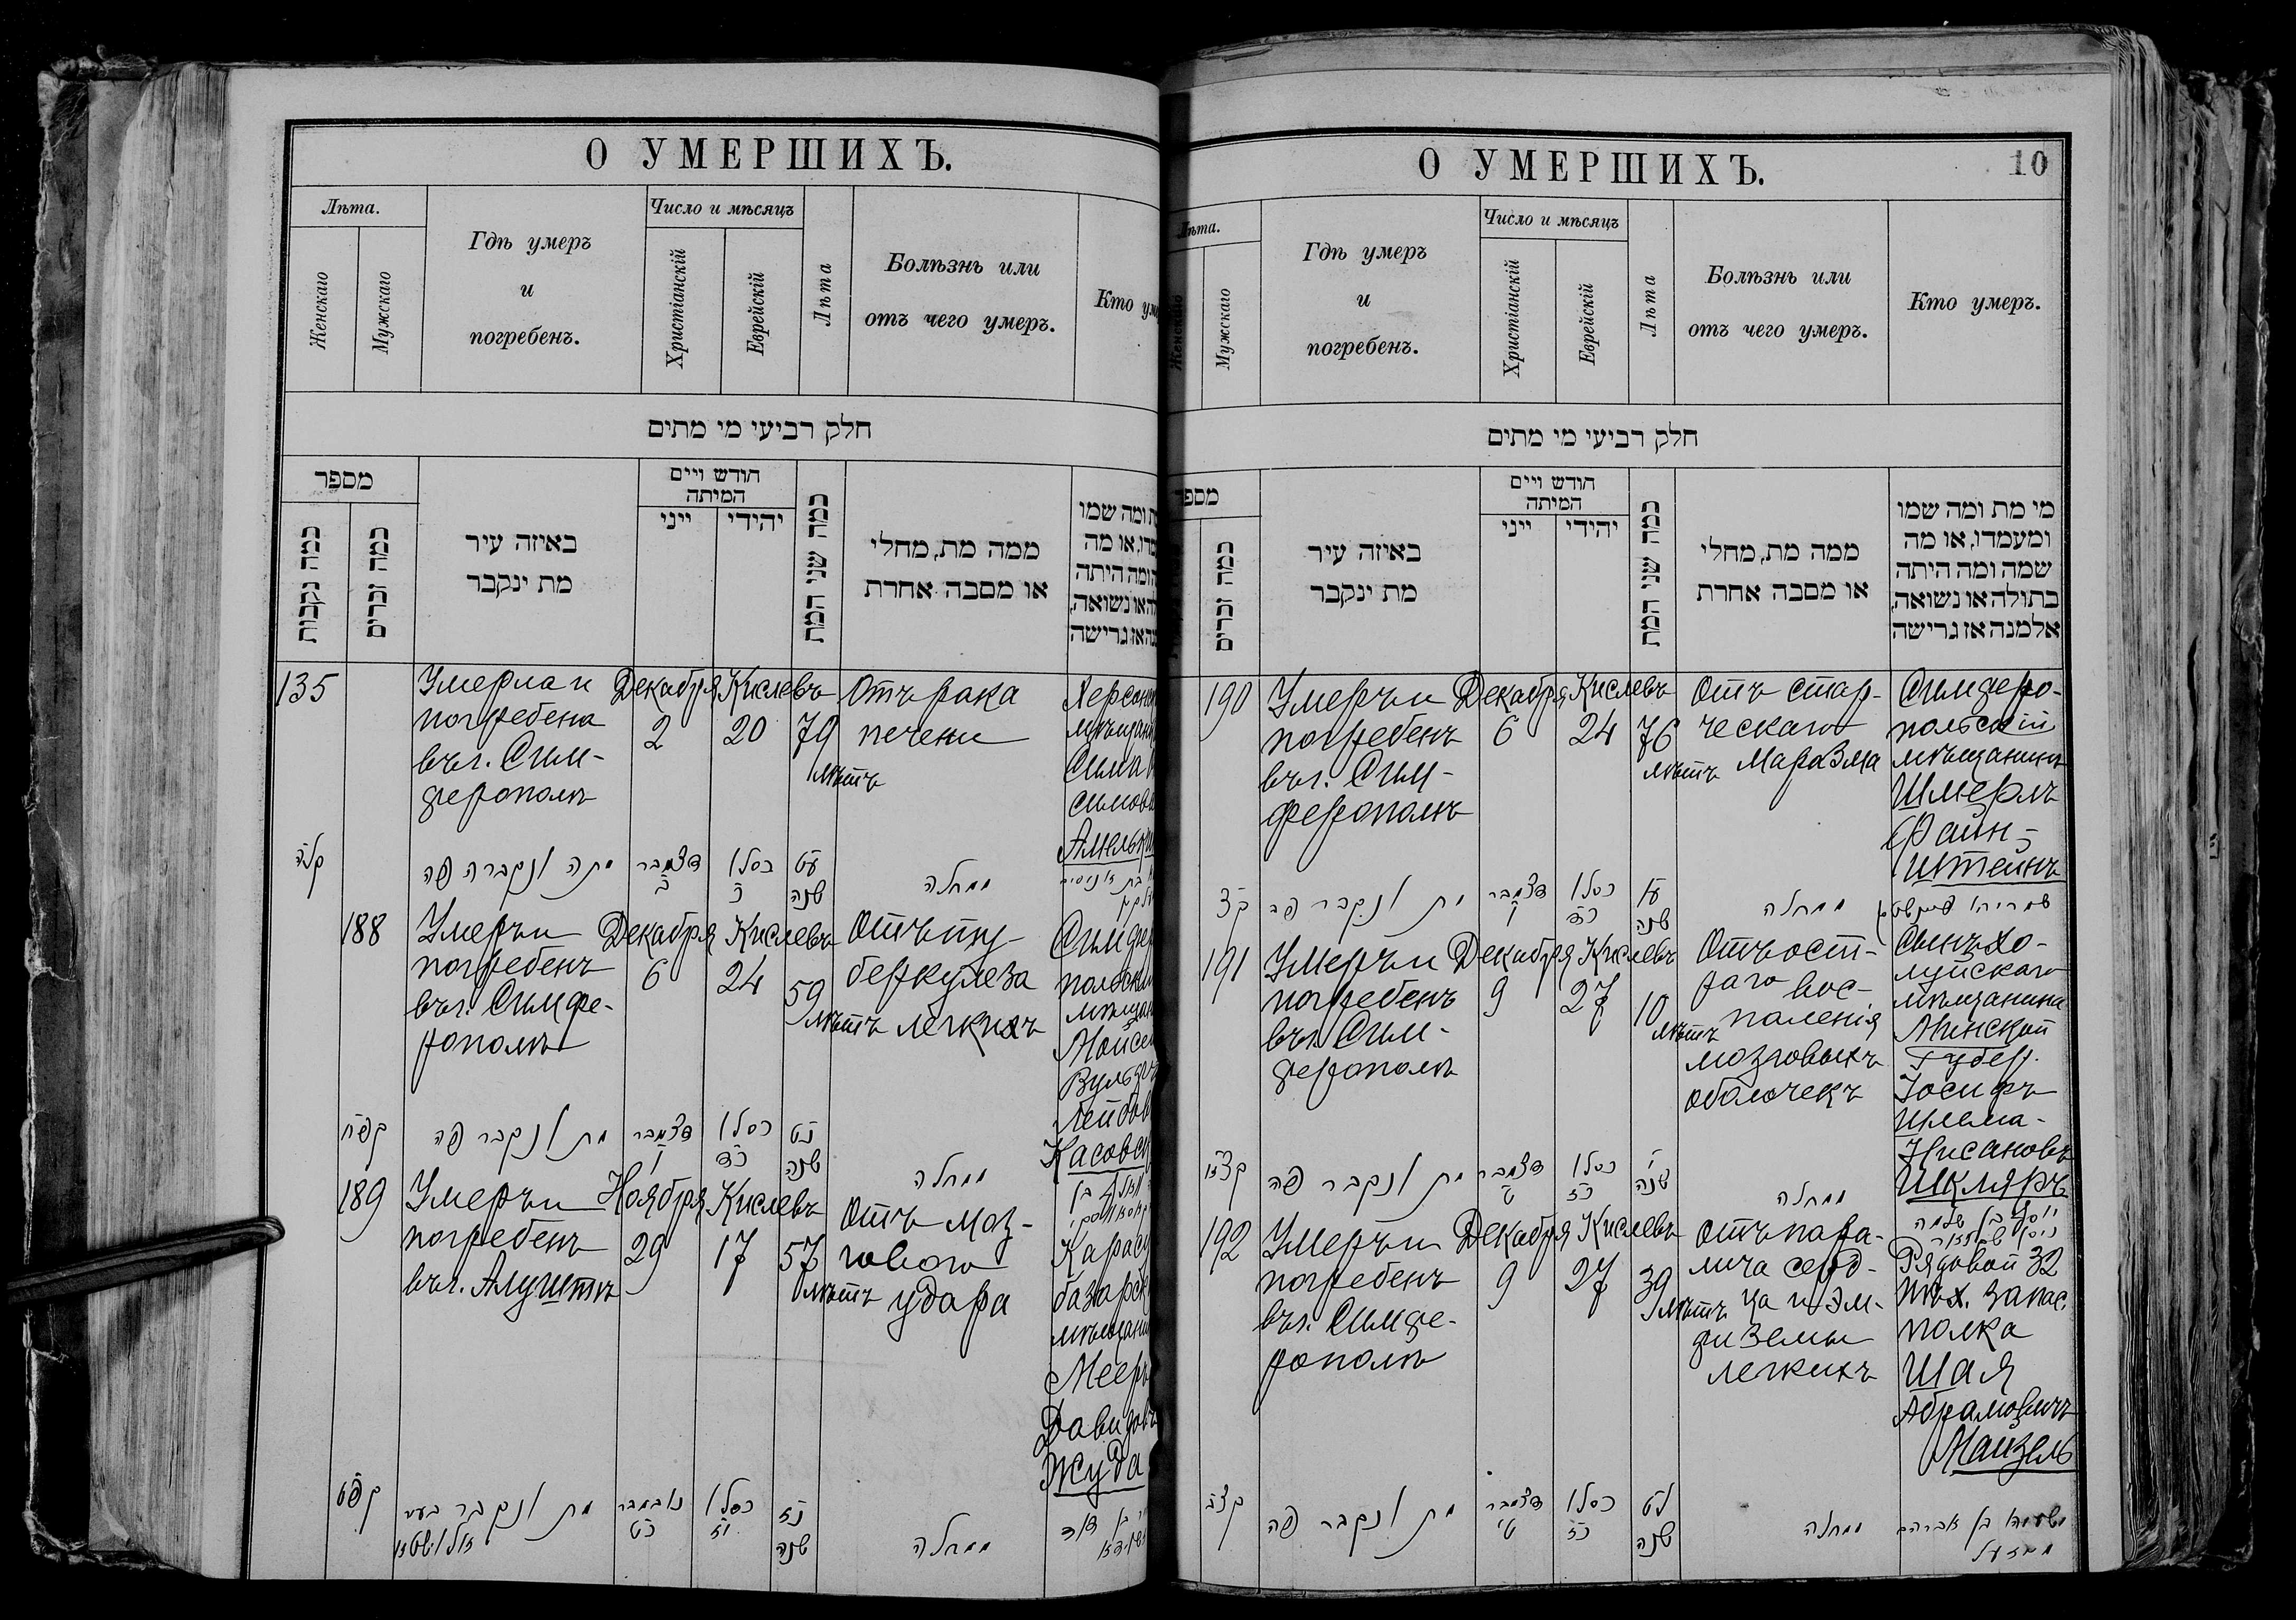 О УМЕРШИХЪ.
Лѣта.
Женскаго
Мужскаго
Гдѣ умеръ
и
погребенъ.
Число и мѣсяцъ
Христіанскій
Еврейскій
Лѣта
Болѣзнь или
отъ чего умеръ.
Кто
חלק רביעי מי מתים
מספר
כמה נקבות
כמה זכרים
באיזה עיר
מת ינקבר
חודש ויים
המיתה
ייני
יהודי
כמה שני המת
ממה מת, מחלי
או מסבה אחרת
ומה שמו
או מה
ומה היתה
או נשואה,
גרישה
135
Умерла и
погребена
въ г. Сим-
ферополѣ
Декабря
2
Кислевъ
20
79
лѣтъ
Отъ рака
печени
Сима
קלה
מתה ונקברה פה
דצמבר
ב
כסלו
כ
עט
שנה
ממחלה
188
Умеръ и
погребенъ
въ г. Симфе-
рополѣ
Декабря
6
Кислевъ
24
59
лѣтъ
Отъ ту-
беркулеза
легкихъ
קפח
מת ונקבר פה
דצמבר
ו
כסלו
כד
נט
שנה
ממחלה
189
Умеръ и
погребенъ
въ г. Алуштѣ
Ноября
29
Кислевъ
17
57
лѣтъ
Отъ моз-
гового
удара
Жуда
קפט
מת ונקבר בעיר
נאבמבר
כט
כסלו
יז
נז
שנה
ממחלה
О УМЕРШИХЪ.
10
Лѣта.
Женскаго
Мужскаго
Гдѣ умеръ
и
погребенъ.
Число и мѣсяцъ
Христіанскій
Еврейскій
Лѣта
Болѣзнь или
отъ чего умеръ.
Кто умеръ.
חלק רביעי מי מתים
כמה זכרים
באיזה עיר
מת ינקבר
חודש ויים
המיתה
ייני
יהודי
כמה שני המת
ממה מת, מחלי
או מסבה אחרת
מי מת ומה שמו
ומעמדו, או מה
שמה ומה היתה
בתולה או נשואה,
אלמנה או גרישה
190
Умеръ и
погребенъ
въ г. Сим-
ферополѣ
Декабря
6
Кислевъ
24
76
лѣтъ
Отъ стар-
ческаго
маразма
Симферо-
польскій
мѣщанинъ
Шмерль
Файн-
штейнъ
קצ
מת ונקבר פה
דצמבר
ו
כסלו
כד
עו
שנה
ממחלה
191
Умеръ и
погребенъ
въ г. Сим-
ферополѣ
Декабря
9
Кислевъ
27
10
лѣтъ
Отъ ост-
раго вос-
паленія
мозговыхъ
оболочекъ
Сынъ Хо-
луйскаго
мѣщанина
Минской
Губер.
Іосифъ
Шлема-
Нисановъ
Шкляръ
קצא
מת ונקבר פה
דצמבר
ט
כסלו
כז
י
שנה
ממחלה
יוסף בן שלמה
192
Умеръ и
погребенъ
въ г. Симфе-
рополѣ
Декабря
9
Кислевъ
27
39
лѣтъ
Отъ пара-
лича серд-
ца и эм-
физемы
легкихъ
Рядовой 32
пѣх. запас.
полка
Шая
Абрамовичъ
Майзель
קצב
מת ונקבר פה
דצמבר
ט
כסלו
כז
לט
שנה
ממחלה
ישעיהו בן אברהם
מייזעל